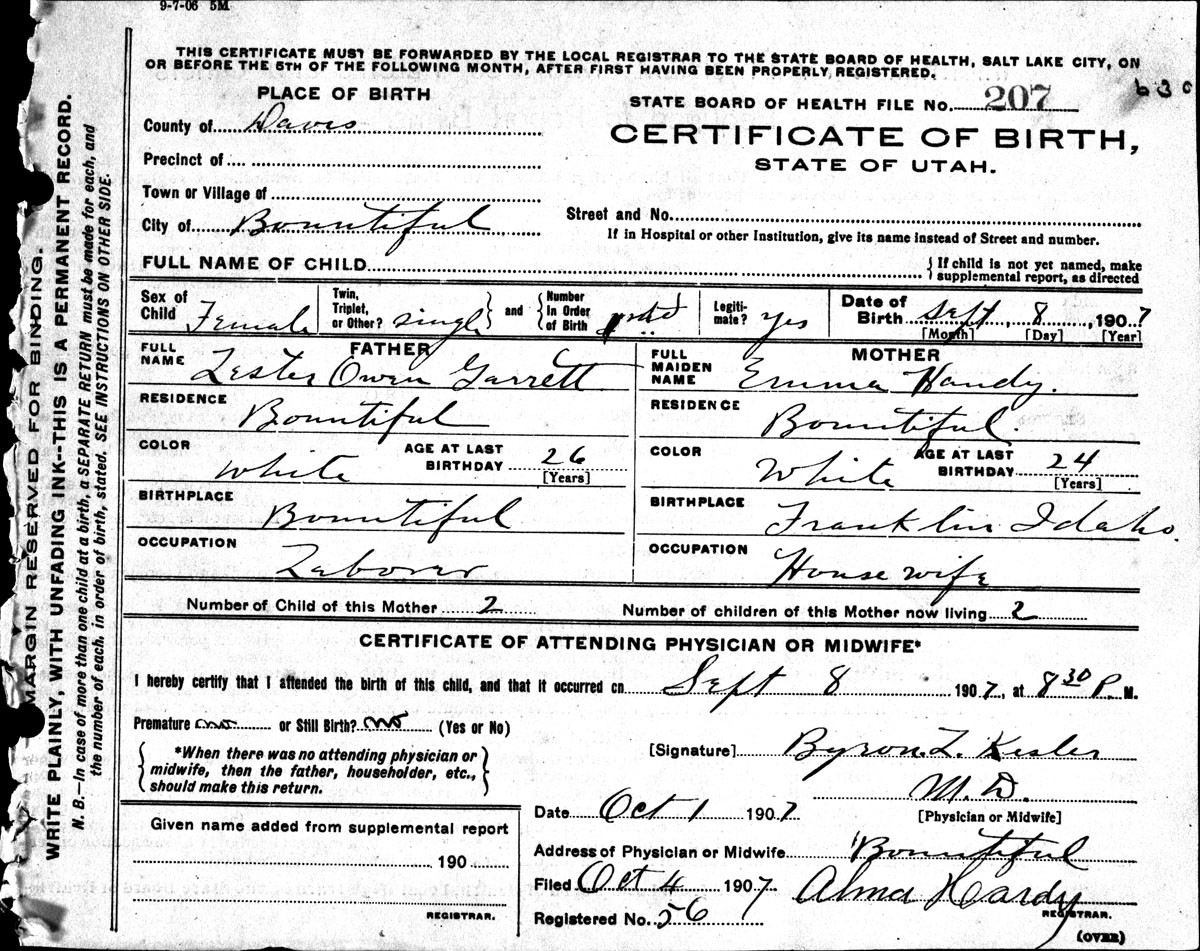 9-7-06 5M
THIS CERTIFICATE MUST BE FORWARDED BY THE LOCAL REGISTRAR TO THE STATE BOARD OF HEALTH, SALT LAKE CITY, ON
OR BEFORE THE 5TH OF THE FOLLOWING MONTH, AFTER FIRST HAVING BEEN PROPERLY REGISTERED.
630
PLACE OF BIRTH
STATE BOARD OF HEALTH FILE NO. 207
County of Davis
CERTIFICATE OF BIRTH,
STATE OF UTAH.
Precinct of
Town or Village of
City of Bountiful
Street and No.
If in Hospital or other Institution, give its name instead of Street and number.
FULL NAME OF CHILD
{If child is not yet named, make
supplemental report, as directed
Sex of Child Female
Twin, Triplet, or Other? single
and
Number In Order of Birth
Legiti-mate? yes
Date of Birth Sept 8, 1907
[Month] [Day] [Year]
FATHER
FULL NAME Lester Owen Garrett
MOTHER
FULL MAIDEN NAME Emma Handy.
RESIDENCE Bountiful
RESIDENCE Bountiful.
COLOR White AGE AT LAST BIRTHDAY 26 [Years]
COLOR White AGE AT LAST BIRTHDAY 24 [Years]
BIRTHPLACE Bountiful
BIRTHPLACE Franklin Idaho.
OCCUPATION Laborer
OCCUPATION House wife
Number of Child of this Mother 2 Number of children of this Mother now living 2
CERTIFICATE OF ATTENDING PHYSICIAN OR MIDWIFE*
I hereby certify that I attended the birth of this child, and that it occurred on Sept 8 1907, at 8 30 P. M.
Premature no or Still Birth? no (Yes or No)
{*When there was no attending physician or
midwife, then the father, householder, etc.,
should make this return.}
[Signature] Byron L. Kesler
M. D.
[Physician or Midwife]
Date Oct 1 1907
Given name added from supplemental report
190
REGISTRAR.
Address of Physician or Midwife Bountiful
Filed Oct 4 1907 Alma Hardy
REGISTRAR.
Registered No. 56
(OVER)
MARGIN RESERVED FOR BINDING.
WRITE PLAINLY, WITH UNFADING INK--THIS IS A PERMANENT RECORD.
N. B.—In case of more than one child at a birth, a SEPARATE RETURN must be made for each, and
the number of each, in order of birth, stated. SEE INSTRUCTIONS ON OTHER SIDE.